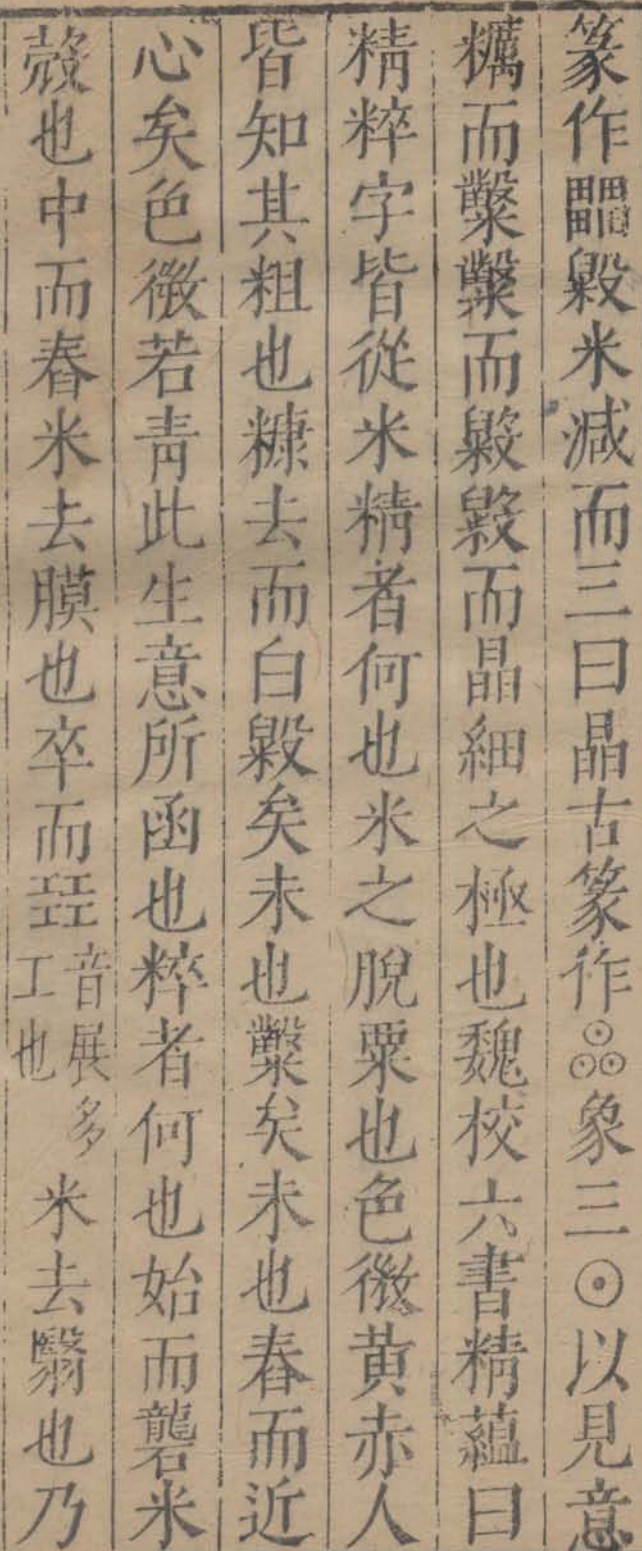 篆作𤳳毇米減而三曰晶古篆作象三⊙以見意
糲而糳糳而毇毇而晶細之極也魏校六書精蘊曰
精粹字皆從米精者何也米之脫粟也色微黃赤人
皆知其粗也糠去而白毇矣未也糳矣未也舂而近
心矣色微若靑此生意所函也粹者何也始而礱米
殼也中而舂米去膜也卒而㠭音展多工也米去翳也乃